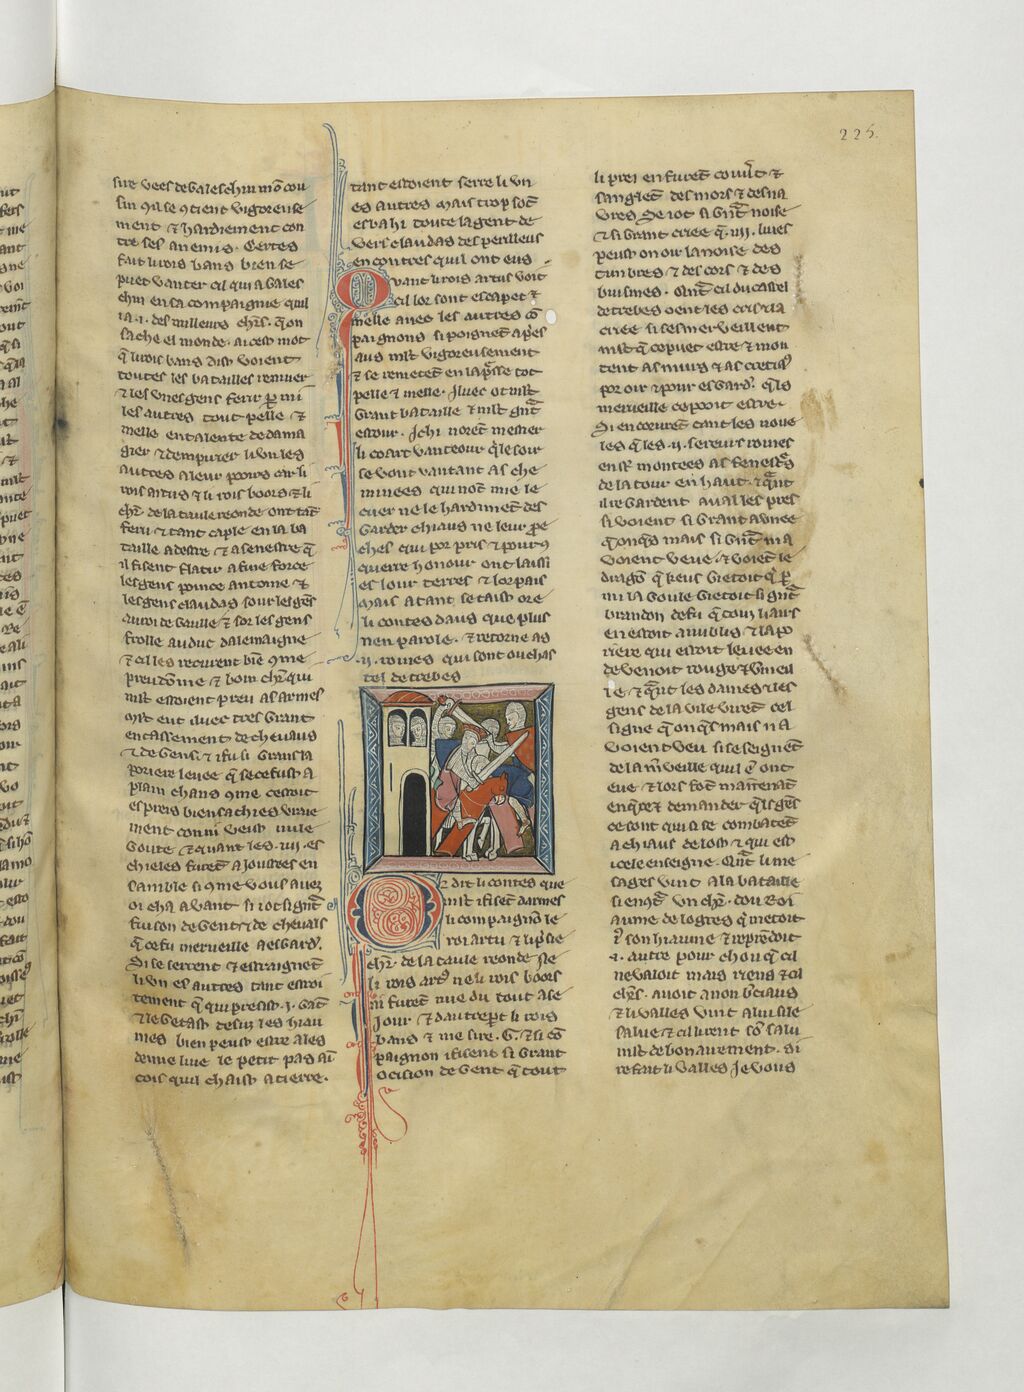 225.
sire vees de Galeschin mō cou
sin 9il se 9tient vigoreuse
ment ⁊ hardiement con
tre ses anemis. Certes
fait li rois bans bien se
puet vanter cil qui a Gales
chin en sa compaignie quil
la .i. des milleurs chrs. qon
sache el monde. a icest mot
q̄ li rois bans dist voient
toutes les batailles remuer
⁊ les vnes gens ferir p̄ mi
les autres tout pelle ⁊
melle entalente de dama
gier ⁊ dempirier li vn les
autres a leur pooirs car li
rois artus ⁊ li rois boors ⁊ li
chr̄. de la taule reonde ont tāt
feru ⁊ tant caple en la ba
taille a destre ⁊ a senestre q̄
il fisent flatir a fine force
les gens ponce antoine ⁊
les gens claudas sour les gēs
au roi de Gaulle ⁊ sor les gens
frolle au duc dalemaigne
⁊ cil les recurent biē 9me
preudōme ⁊ boin chr̄ qui
mlt estoient preu as armes
mlt ont iluec tres grant
entassement de cheuaus
⁊ de Gens ⁊ i fu si Grans la
poriere leuee q̄ se ce fust a
plain chans 9me cestoit
es pres bien sachies vraie
ment conm̄ veist mile
Goute ⁊ quant les .iiii. es
chieles furēt a joustees en
samble si 9me vous auez
oi cha auant si i ot si gnt̄
fuison de Gent ⁊ de cheuals
q̄ ce fu merueille a esGard'.
Si se serrent ⁊ estraignēt
li vn es autres tant estroi
tement q̄ qui presist .i. Gāt
⁊ le Getast desus les hiau
mes bien peust estre ales
demie liue le petit pas āi
cois quil chaist a tierre.
tant estoient serre li vn
es autres Mais trop sōt
esbahi toute la gent de
vers claudas des perilleus
encontres quil ont eus
Quant li rois artus voit
cil lor sont escapet ⁊
melle auec les autres cō
paignons si poignēt ap̄es
aus mlt vigoreusement
⁊ se remetēt en la p̄sse tot
pelle ⁊ melle. Iluec ot mlt
Grant bataille ⁊ mlt gnt̄
estour. Ichi norēt mestier
li coart vanteour q̄ le soir
se vont vantant as che
minees qui nōt mie le
cuer ne le hardimēt des
Garder chiaus ne leur p̄e
ches qui por pris ⁊ pour 9
querre honour ont laissi
es lour terres ⁊ lor pais
Mais atant se taist ore
li contes daus que plus
nen parole. ⁊ retorne as
.ij. roines qui sont ou chas
tel de trebes
Or dit li contes que
mlt i fisēt darmes
li compaignō le
roi artu ⁊ li p̄sie
chr̄. de la taule reonde Se
li rois art9 ne li rois boors
ni furēt mie du tout a se
jour ⁊ dautre pt li rois
bans ⁊ me sire .G. ⁊ si cō
paignon i fisent si Grant
ocision de Gent q̄ tout
li prei en furēt couūt ⁊
sanglēt des mors ⁊ des na
vres. Se i ot si gnt̄ noise
⁊ si Grant criee q̄ .iiii. lieues
peust on oir la noise des
tunbres ⁊ des cors ⁊ des
buisines. Qnt̄ cil du castel
de trebes oent les cris ⁊ la
criee si sesmerveillent
mlt q̄ ce puet estre ⁊ mon
tent as murs ⁊ as cretiaus
por oir ⁊ pour esGard'. q̄ls
merueille ce pooit estre.
Si en coururēt tant les noue
les q̄ les .ij. sereurs roines
en st̄ montees as fenestres
de la tour en haut. ⁊ q̄nt
il resgardent aual les pres
si voient si Grant aunee
q̄ onq̄s mais si gnt̄ ni a
voient veue ⁊ voiēt le
dragō q̄ keus Gietoit q̄ p̄
mi la Goule Gietoit si gnt̄
brandon de fu q̄ touz li airs
en estoit anublis ⁊ la po
riere qui estoit leuee en
devenoit rouge ⁊ vmeil
le ⁊ q̄nt les dames ⁊ les
gens de la vile virēt cel
signe q̄ onq̄s mais n a
voient veu si se seignēt
de la m̄veille quil ē ont
eue ⁊ lors fōt maītenāt
enq̄re ⁊ demander q̄ls gēs
ce sont qui si se combatēt
a chiaus de lost ⁊ qui est
icele enseigne. Qnt̄ li me
sages vint a la bataille
si encōt̄ vn chr̄. dou Roi
aume de logres q̄ metoit
ī son hiaume ⁊ reprēdoit
.i. autre pour chou q̄ cil
ne valoit mais riens ⁊ cil
chr̄s. auoit a non bretiaus
⁊ li valles vint a lui si le
salue ⁊ cil li rent sō salu
mlt debonairement. Si
refait li valles Je vous